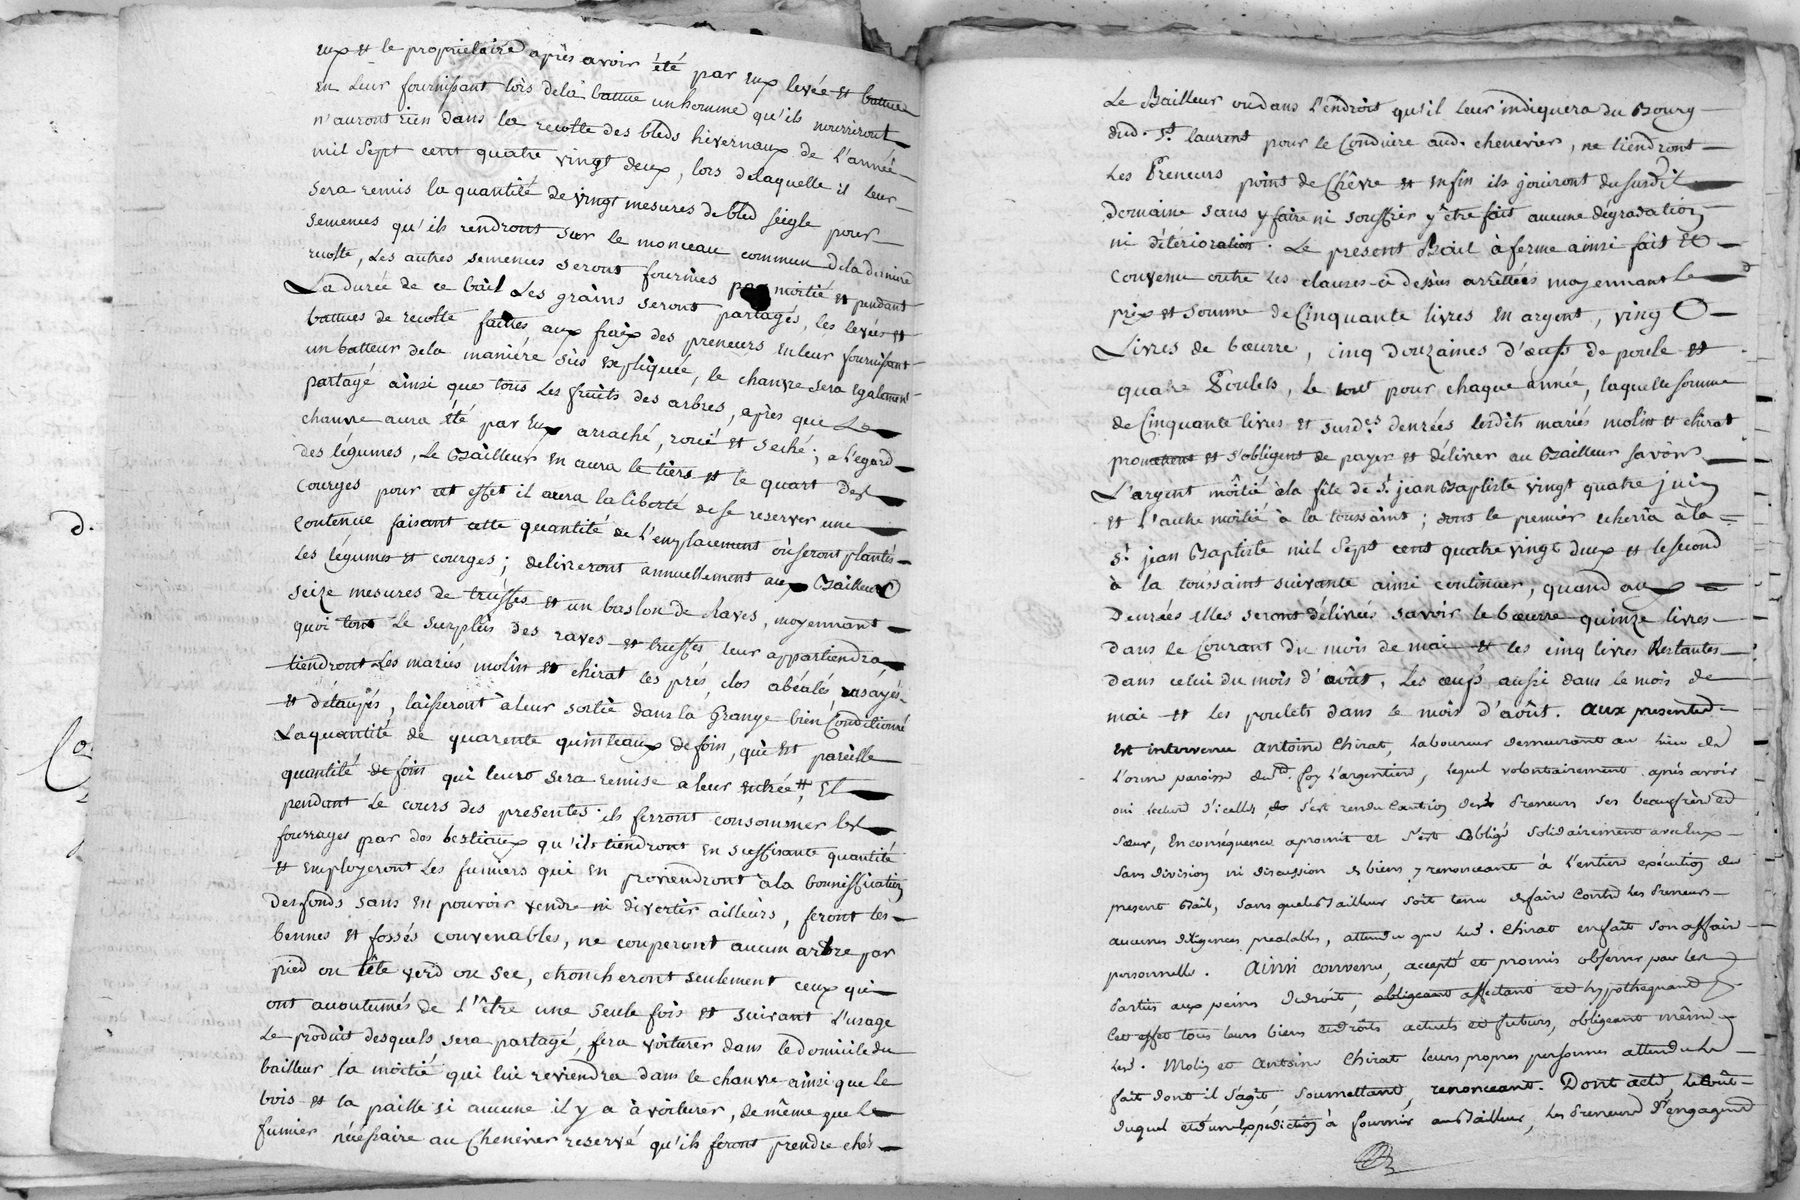 eux et le proprietaire après avoir été par eux levée et battue
en leur fournissant lors dela battue un homme qu'ils nourriront
n'auront rien dans la recolte des bleds hivernaux de l'année
mil sept cent quatre vingt deux, lors delaquelle il leur
sera remis la quantité de vingt mesures de bled seigle pour
semences qu'ils rendront sur le monceau commun dela derniere
recolte, Les autres semences seront fournies par moitié et pendant
La durée de ce bail Les grains seront partagés, les levées et
battues de recolte faittes aux fraix des preneurs en leur fournissant
un batteur dela maniére süs expliquée, le chanvre sera egalement
partagé ainsi que tous Les fruits des arbres, après que Le
chanvre aura été par eux arraché, roüé et seché; a l'egard
des légumes, Le Bailleur en aura le tiers et le quart des
courges pour cet effet il aura la liberté de se reserver une
contenue faisant cette quantité de l'emplacement où seront plantés
Les légumes et courges; delivreront annuellement aux Bailleur
seize mesures de truffes et un baslon de Raves, moyennant
quoi tout Le surplus des raves et truffes leur appartiendra
tiendront Les mariés molin et chirat les prés clos abéalés rasáyés
et détaupés, laisseront à leur sortie dans la Grange bien Conditionné
La quantité de quarente quinteaux de foin, qui est pareille
quantité de foin qui leurs sera remise a leur entrée, Et
pendant Le cours des presentes ils ferront consommer les
fourrages par des bestiaux qu'ils tiendront en suffisante quantité
et employeront Les fumiers qui en proviendront à la bonnification
Des fonds sans en pouvoir vendre ni divertir ailleurs, feront les
bennes et fossés convenables, ne couperont aucun arbre par
pied ou tête verd ou sec, etroncheront seulement ceux qui
ont acoutumés de L'être une seule fois et suivant L'usage
Le produit desquels sera partagé, fera voiturer dans le domicile du
bailleur la moitié qui lui reviendra dans le chanvre ainsi que le
bois et la paille si aucune il y a à voiturer, de même que Le
fumier nécéssaire au Chenevier reservé qu'ils feront prendre chés
d.
Le Bailleur ou dans l'endroit qu'il leur indiquera du Bourg
dud. St. laurent pour le Conduire aud. chenevier, ne tiendront
Les Preneurs point de Chévre et enfin ils joüiront du susdit
domaine sans y faire ni souffrir y être fait aucune dégradation
ni déterioration. Le present Bail à ferme ainsi fait et
convenu outre Les clauses ci dessus arrêttées moyennant Le
prix et somme de Cinquante livres en argent, vingt
Livres de bœurre, cinq douzaines d'œufs de poule et
quatre Poulets, Le tout pour chaque année, laquelle somme
de Cinquante livres et susd.es denrées lesdits mariés molin et chirat
promettent et s'obligent de payer et délivrer au Bailleur savoir
L'argent moitié à la fête de St. jean Baptiste vingt quatre juin
et l'autre moitié à la toussaint; dont le premier echerra à la
St. jean Baptiste mil sept cent quatre vingt deux et le second
à la toussaint suivante ainsi continuer, quand aux
Denrées elles seront délivrées savoir le bœurre quinze livres
dans le Courant du mois de mai et les cinq livres Restantes
dans celui du mois d'août, Les œufs aussi dans le mois de
mai et les poulets dans le mois d'août. aux presentes
Est intervenu antoine Chirat, Laboureur demeurant au lieu de
L'orme paroisse de Ste. foy L'argentiere, lequel volontairement après avoir
oui lecture d'icelles, s'est rendu Caution desd. Preneurs ses beaufrère et
sœur, En conséquence a promit et s'est obligé solidairement avec eux
sans division ni discussion de biens y renonceant à L'entiere exécution du
present Bail, sans que le Bailleur soit tenu de faire Contre Les Preneurs
aucunes diligences prealables, attendu que Led. Chirat en fait son affaire
personnelle. Ainsi convenu, accepté et promis observer par Les
Parties aux peines de droit, obligeant affectant et hypothequant à
Cet effet tous leurs biens et droits actuels et futurs, obligeant même
Led. Molin et Antoine Chirat leurs propres personnes attendu Le
fait dont il s'agit, soumettant, renonceant. Dont acte, Le Coût
duquel et d'une Expédition à fournir au Bailleur, Les Preneurs s'engagent